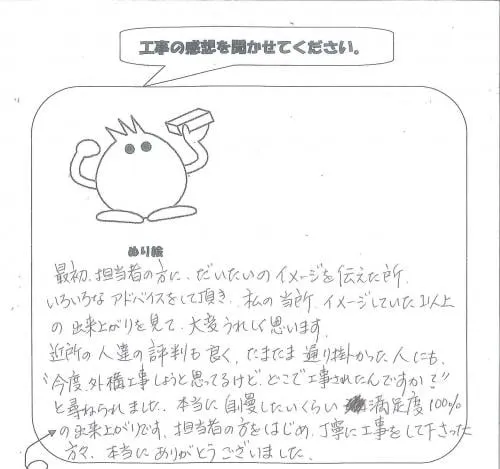 工事の感想を聞かせてください。
ぬり絵
最初、担当者の方に、だいたいのイメージを伝えた所、
いろいろな アドバイスをして頂き、私の当所、イメージしていた以上
の出来上がりを見て、大変うれしく思います。
近所の人達の評判も良く、たまたま通り掛かった人にも、
"今度、外構工事しようと思ってるけど、どこで工事されたんですか?"
と尋ねられました。本当に自慢したいくらい 満足度100%
の出来上がりです。担当者の方をはじめ、丁寧に工事をして下さった
方々、本当にありがとうございました。